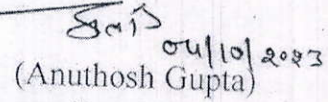 04/10/2023
(Anuthosh Gupta)